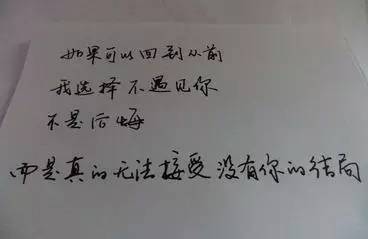 如果可以回到从前
我选择不遇见你
不是后悔
而是真的无法接受没有你的结局